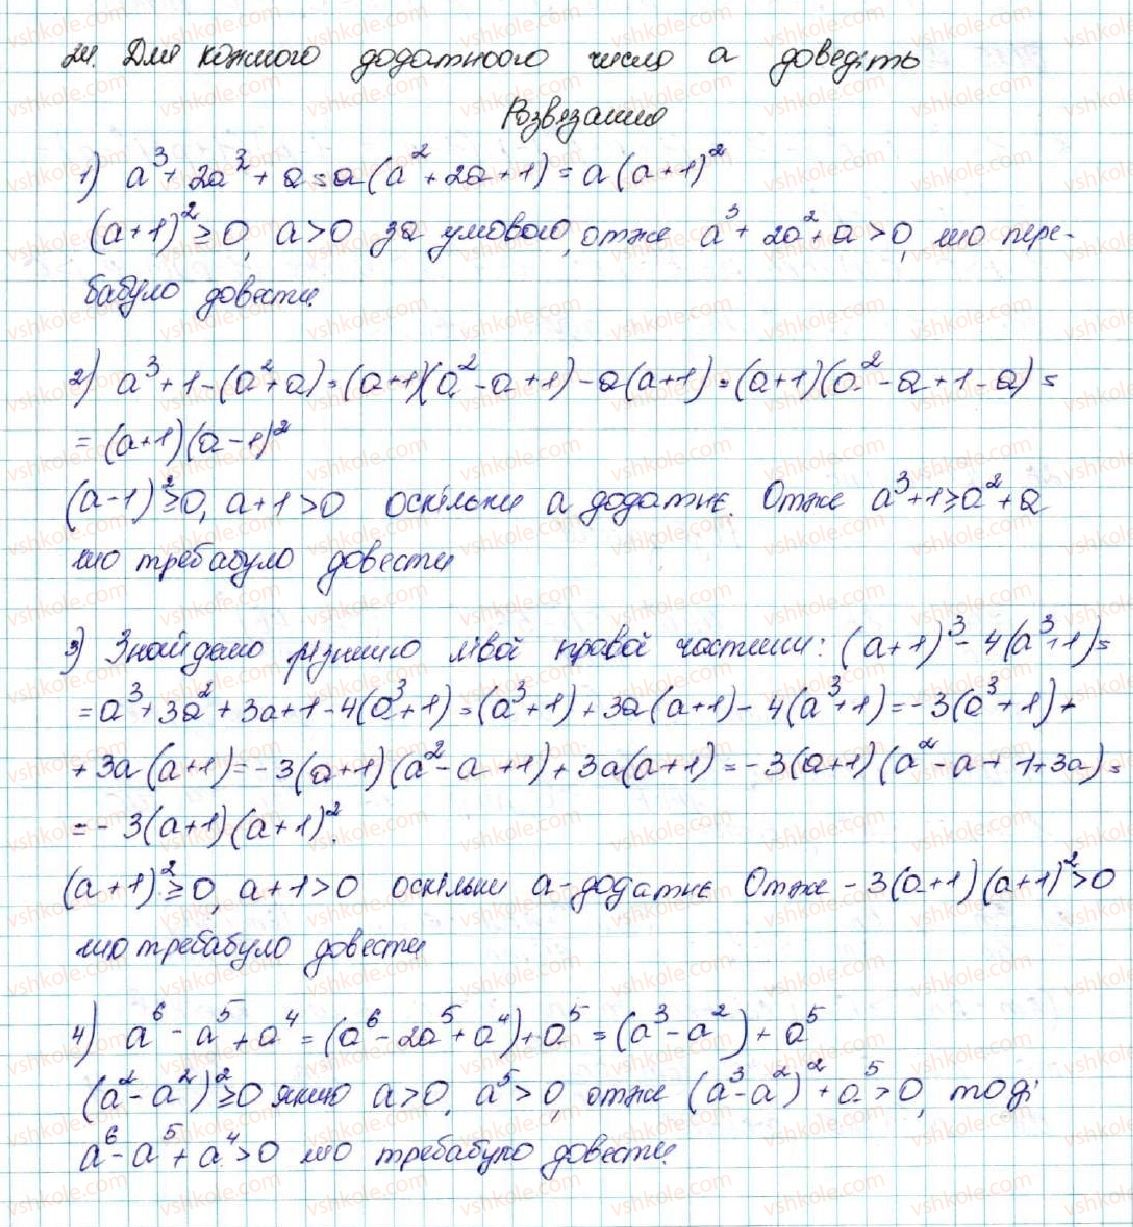 24. Для кожного додатнього число a доведіть
Розвязання
1) a³ + 2a² + a = a(a² + 2a + 1) = a(a+1)²
(a+1)² ≥ 0, a > 0 за умовою, отже a³ + 2a² + a > 0, що пере-
бабуло довести
2) a³ + 1 - (a² + a) = (a+1)(a² - a + 1) - a(a+1) = (a+1)(a² - a + 1 - a) =
= (a+1)(a-1)²
(a-1)² ≥ 0, a+1 > 0 оскільки a додатнє. Отже a³ + 1 ≥ a² + a
що требабуло довести
3) Знайдемо різницю лівої правої частини: (a+1)³ - 4(a³+1) =
= a³ + 3a² + 3a + 1 - 4(a³+1) = (a³+1) + 3a(a+1) - 4(a³+1) = -3(a³+1) +
+ 3a(a+1) = -3(a+1)(a² - a + 1) + 3a(a+1) = -3(a+1)(a² - a + 1 + 3a) =
= -3(a+1)(a+1)².
(a+1)² ≥ 0, a+1 > 0 оскільки a - додатнє Отже -3(a+1)(a+1)² > 0
що требабуло довести
4) a⁶ - a⁵ + a⁴ = (a⁶ - 2a⁵ + a⁴) + a⁵ = (a³ - a²) + a⁵
(a² - a²)² ≥ 0 якщо a > 0, a⁵ > 0, отже (a³ - a²)² + a⁵ > 0, тоді
a⁶ - a⁵ + a⁴ > 0 що требабуло довести.